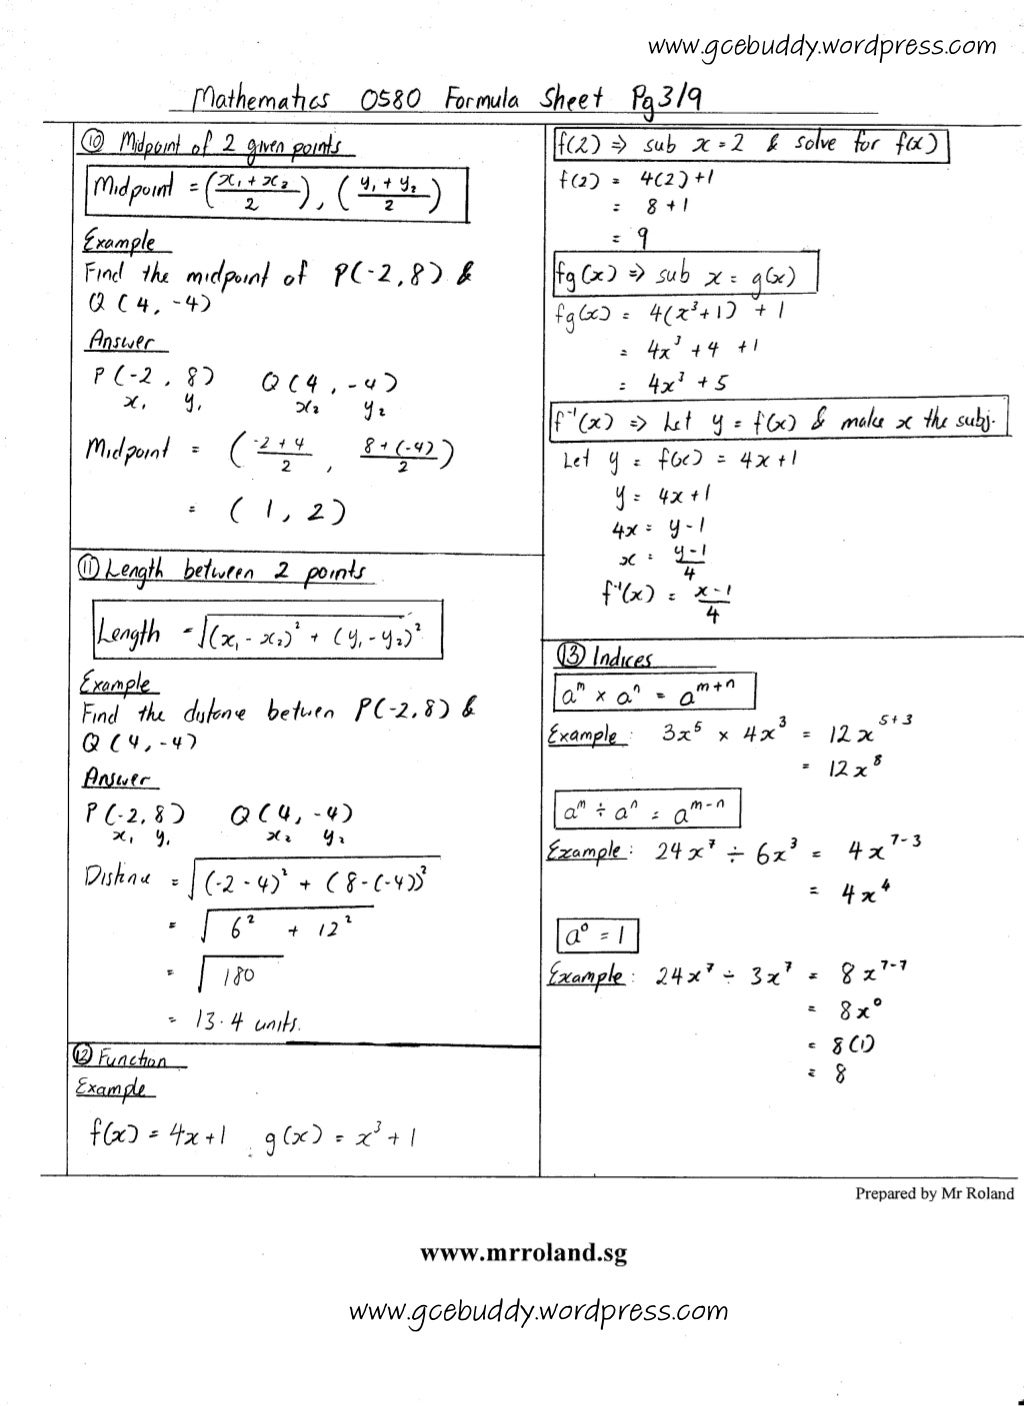 www.gcebuddy.wordpress.com
Mathematics 0580 Formula Sheet Pg 3/9
⑩ Midpoint of 2 given points
Midpoint = ((x₁ + x₂)/2), ((y₁ + y₂)/2)
Example
Find the midpoint of P(-2, 8) &
Q (4, -4)
Answer
P (-2, 8) Q (4, -4)
x₁ y₁ x₂ y₂
Midpoint = ((-2 + 4)/2, (8 + (-4))/2)
= (1, 2)
⑪ Length between 2 points
Length = √((x₁ - x₂)² + (y₁ - y₂)²)
Example
Find the distance between P(-2, 8) &
Q (4, -4)
Answer
P (-2, 8) Q (4, -4)
x₁ y₁ x₂ y₂
Distance = √((-2 - 4)² + (8 - (-4))²)
= √(6² + 12²)
= √180
= 13.4 units.
⑫ Function
Example
f(x) = 4x + 1 g(x) = x³ + 1
f(2) ⇒ sub x = 2 & solve for f(x)
f(2) = 4(2) + 1
= 8 + 1
= 9
fg(x) ⇒ sub x = g(x)
fg(x) = 4(x³ + 1) + 1
= 4x³ + 4 + 1
= 4x³ + 5
f⁻¹(x) ⇒ Let y = f(x) & make x the subj.
Let y = f(x) = 4x + 1
y = 4x + 1
4x = y - 1
x = (y - 1)/4
f⁻¹(x) = (x - 1)/4
⑬ Indices
aᵐ × aⁿ = aᵐ⁺ⁿ
Example: 3x⁵ × 4x³ = 12x⁵⁺³
= 12x⁸
aᵐ ÷ aⁿ = aᵐ⁻ⁿ
Example: 24x⁷ ÷ 6x³ = 4x⁷⁻³
= 4x⁴
a⁰ = 1
Example: 24x⁷ ÷ 3x⁷ = 8x⁷⁻⁷
= 8x⁰
= 8(1)
= 8
Prepared by Mr Roland
www.mrroland.sg
www.gcebuddy.wordpress.com